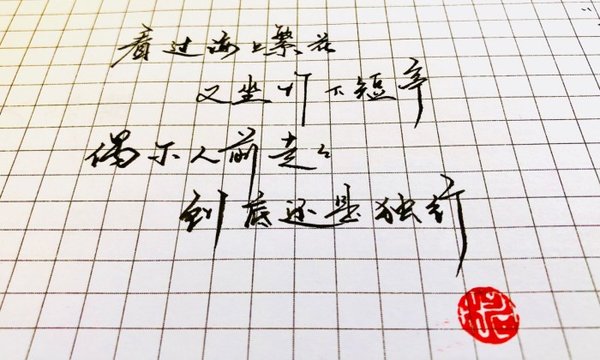 看过海上繁花
又坐灯下短亭
偶尔人前走走
到底还是独行